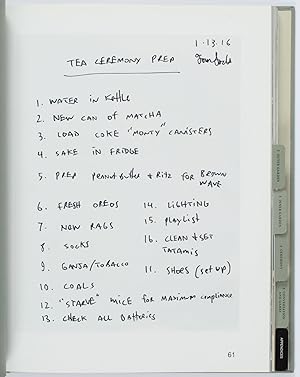 1.13.16
TEA CEREMONY PREP
Tom Sachs
1. WATER IN KETTLE
2. NEW CAN OF MATCHA
3. LOAD COKE "MONTY" CANISTERS
4. SAKE IN FRIDGE
5. PREP PEANUT BUTTER & RITZ FOR BROWN
WAVE
6. FRESH OREOS
7. NEW RAGS
8. SOCKS
9. GANJA/TOBACCO
10. COALS
14. LIGHTING
15. PLAYLIST
16. CLEAN & SET
TATAMIS
11. SHOES (SET UP)
12. "STARVE" MICE FOR MAXIMUM COMPLIANCE
13. CHECK ALL BATTERIES
61
APPENDICES